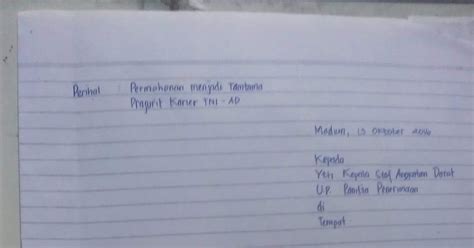 Perihal : Permohonan menjadi Tamtama
Prajurit Karier TNI-AD
Madiun, 13 Oktober 2016
Kepada
Yth. Kepala Staf Angkatan Darat
U.P. Panitia Penerimaan
di
Tempat